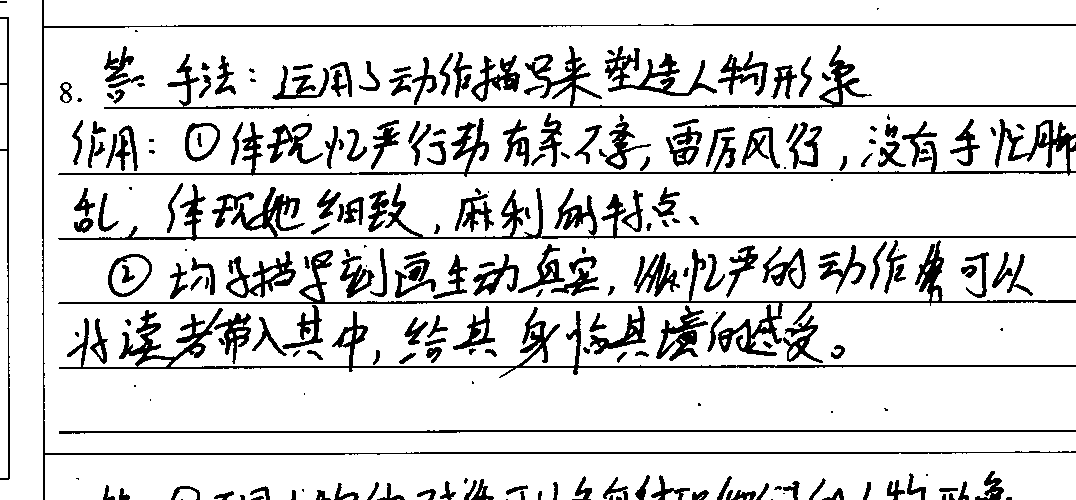 8. 答: 手法：运用了动作描写来塑造人物形象
作用：①体现忆严行动有条不紊，雷厉风行，没有手忙脚
乱，体现她细致，麻利的特点、
② 均为描写刻画生动真实，忆严的动作 可以
将读者带入其中，给其身临其境的感受。